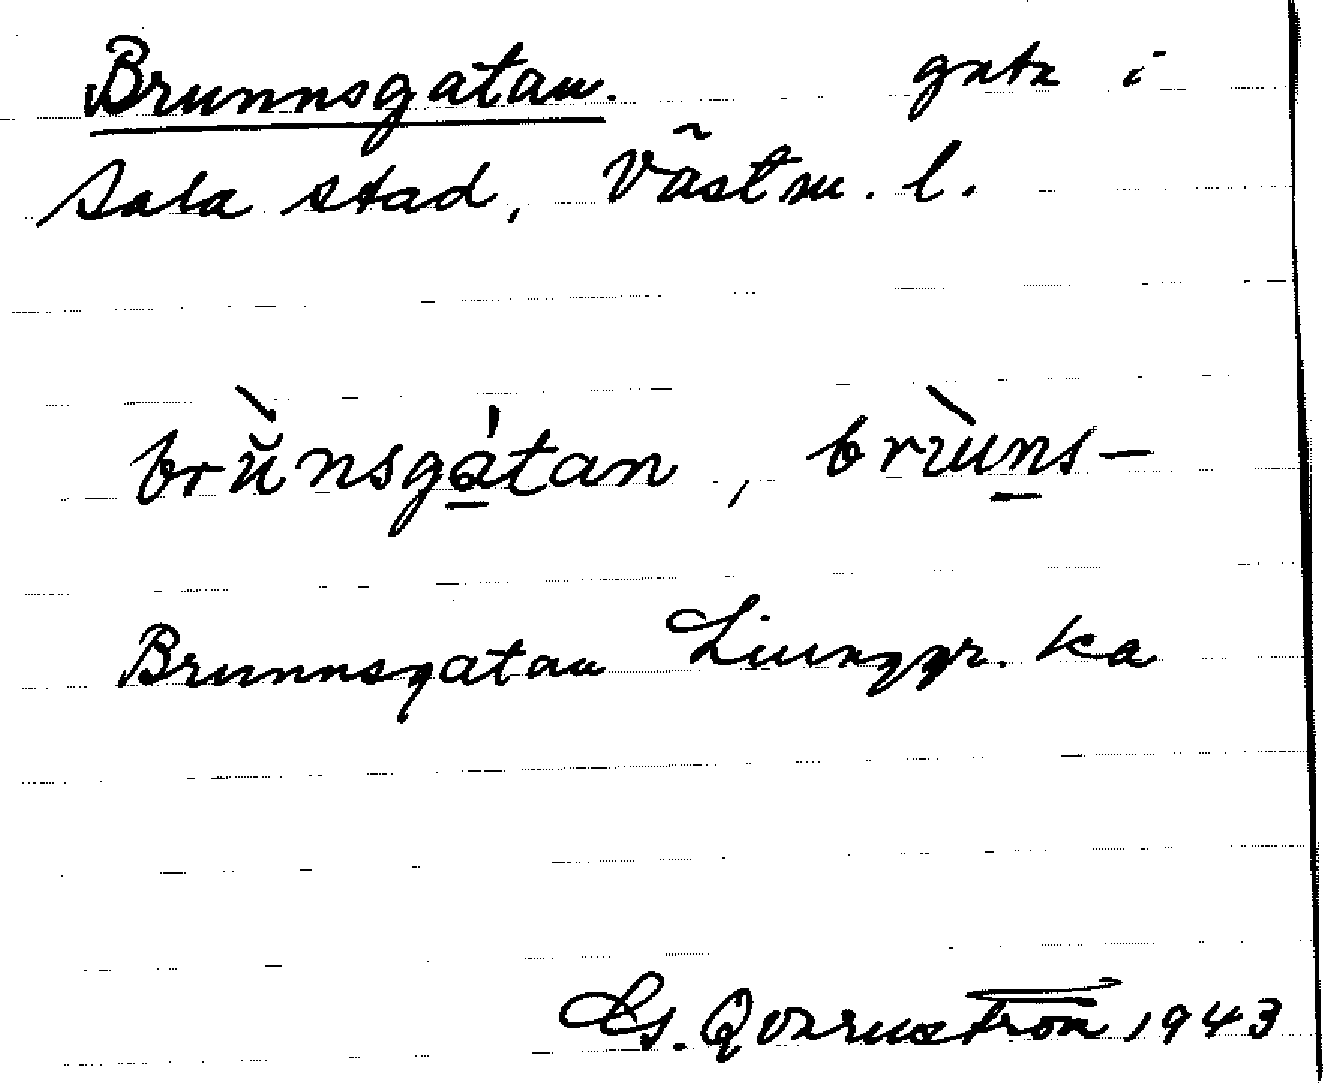 Brunnsgatan. gata i
Sala stad, Västm. l.
brùnsgátan, brùuns-
Brunnsgatan Ljunggr. ka
Gs. Qvarnström 1943